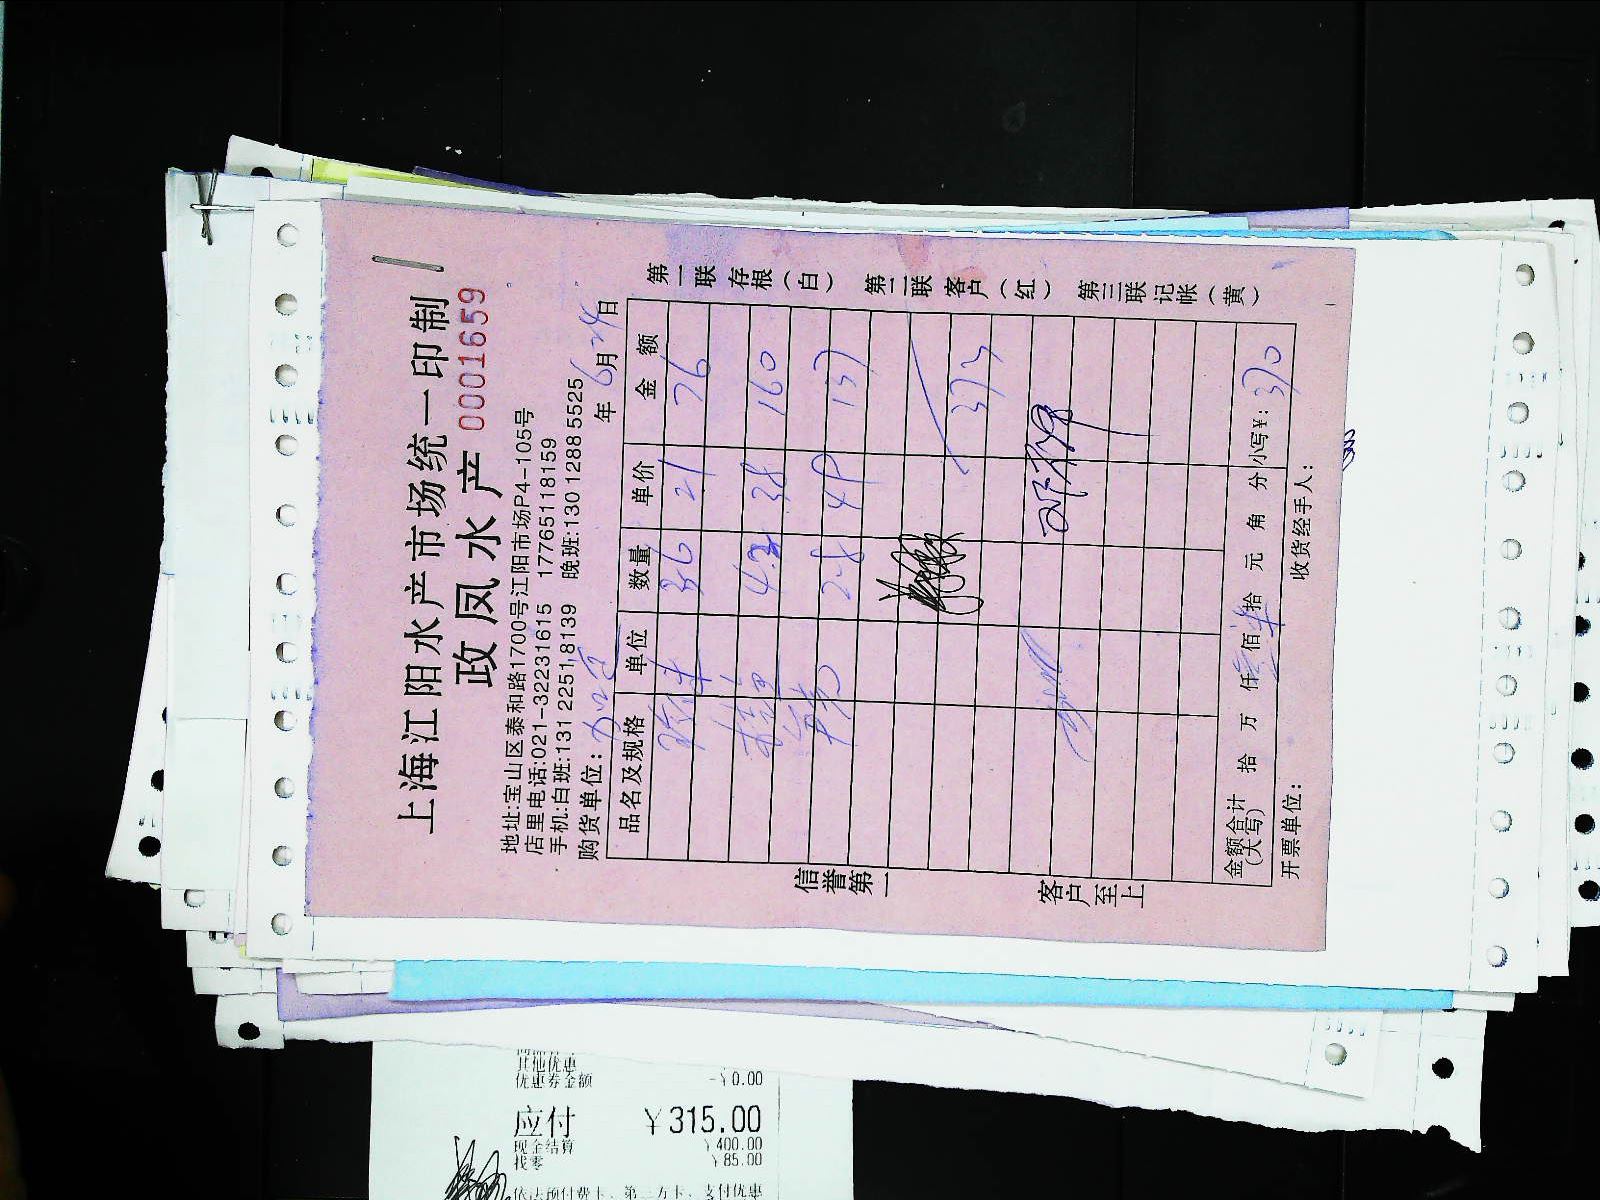 上海江阳水产市场统一印制
政凤水产 0001659
地址:宝山区泰和路1700号江阳市场P4-105号
店里电话:021-32231615 17765118159
手机:白班:131 2251 8139 晚班:130 1288 5525
购货单位: 年 6月24日
品名及规格 单位 数量 单价 金额
3.6 21 76
桂鱼 4.2 38 160
2.8 49 137
373
金额合计(大写) 拾 万 仟 佰 拾 元 角 分 小写¥: 370
开票单位: 收货经手人:
第一联 存根(白) 第二联 客户(红) 第三联 记帐(黄)
信誉第一 客户至上
其他优惠
优惠券金额 -¥0.00
应付 ¥315.00
现金结算 ¥400.00
找零 ¥85.00
依法预付费卡、第三方卡、支付优惠